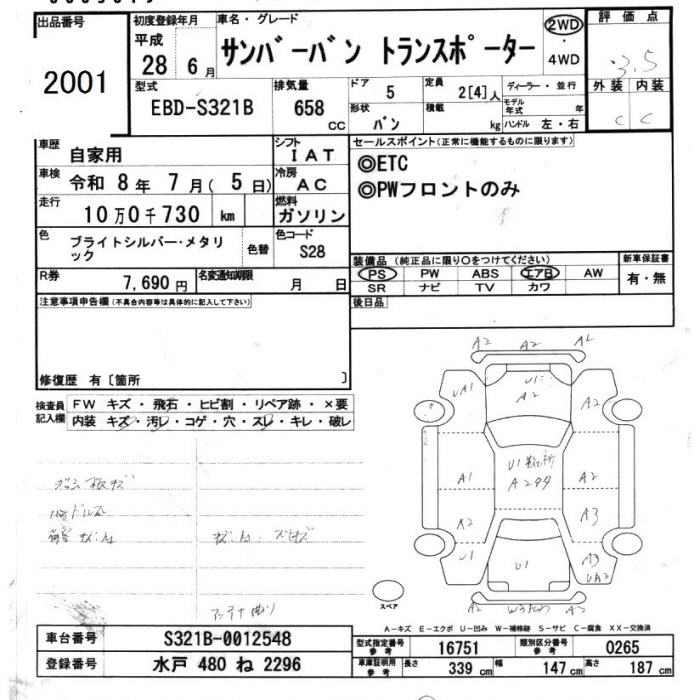 出品番号
2001
初度登録年月
平成
28 6月
車名・グレード
サンバーバン トランスポーター
2WD
・
4WD
評価点
3.5
外装 内装
C C
型式
EBD-S321B
排気量
658
CC
ドア
5
形状
バン
定員
2[4]人
積載
kg
ディーラー・並行
モデル年式 年
ハンドル 左・右
車歴
自家用
シフト
IAT
車検
令和 8年 7月( 5日)
冷房
AC
走行
10万0千730 km
燃料
ガソリン
色
ブライトシルバー・メタリック
色替
色コード
S28
R券
7,690円
名変通知期限
月 日
セールスポイント(正常に機能するものに限ります)
◎ETC
◎PWフロントのみ
装備品(純正品に限り○をつけてください)
PS PW ABS エアB AW
SR ナビ TV カワ
新車保証書
有・無
後日品
注意事項申告欄(不具合内容等は具体的に記入して下さい)
修復歴 有〔箇所 〕
検査員
記入欄
FW キズ・飛石・ヒビ割・リペア跡・×要
内装 キズ・汚レ・コゲ・穴・スレ・キレ・破レ
A2 A2
UA1 U1 A2 A2
U1
A1 A2
A2 A3
U1 U1 A3
UA2
A2
スペア
A-キズ E-エクボ U-凹み W-補修跡 S-サビ C-腐食 XX-交換済
車台番号
S321B-0012548
登録番号
水戸 480 ね 2296
型式指定番号
参考
16751
類別区分番号
参考
0265
車庫証明用
参考
長さ 339 cm
幅 147 cm
高さ 187 cm